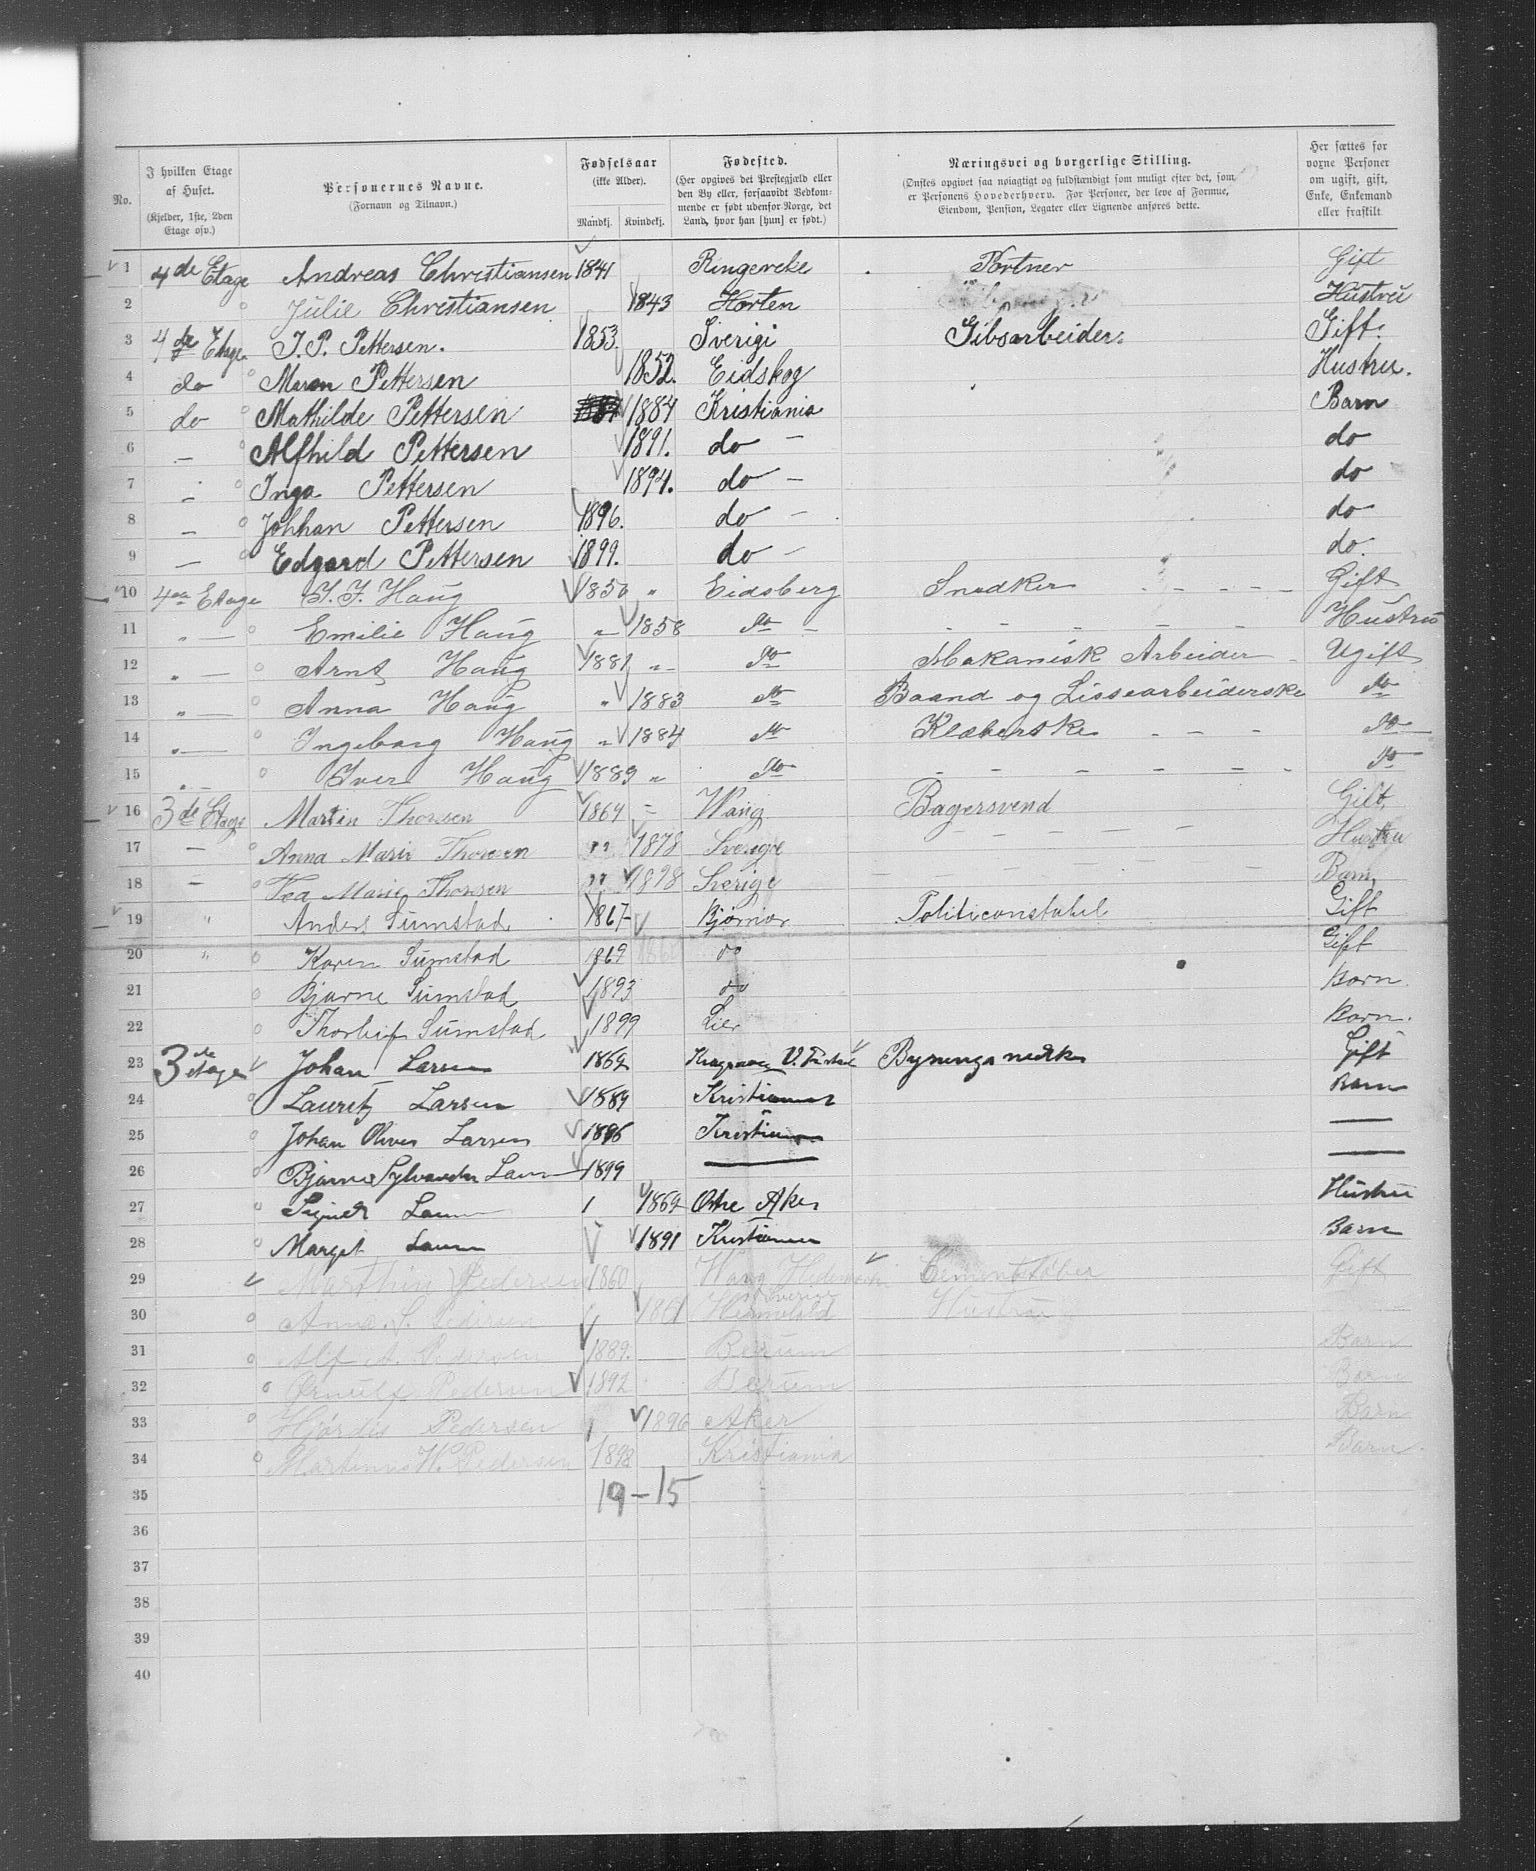 No.
I hvilken Etage af Huset.
(Kjelder, 1ste, 2den Etage osv.)
Personernes Navne.
(Fornavn og Tilnavn.)
Fødselsaar
(ikke Alder).
Mandkj. Kvindekj.
Fødested.
(Her opgives det Prestegjæld eller den By eller, forsaavidt Vedkommende er født udenfor Norge, det Land, hvor han [hun] er født.)
Næringsvei og borgerlige Stilling.
(Ønskes opgivet saa nøiagtigt og fuldstændigt som muligt efter det, som er Personens Hovederhverv. For Personer, der leve af Formue, Eiendom, Pension, Legater eller Lignende anføres dette.
Her sættes for voxne Personer om ugift, gift, Enke, Enkemand eller fraskilt.
1 4de Etage Andreas Christiansen 1841 Ringereke Portner Gift
2 Julie Christiansen 1843 Horten Hustru
3 4de Etage J. P. Pettersen. 1853. Sverigi Gibsarbeider. Gift.
4 do Maren Pettersen 1852. Eidskog Hustru.
5 do Mathilde Pettersen 1884 Kristiania Barn
6 — Alfhild Pettersen 1891. do — do
7 — Inga Pettersen 1894. do — do
8 — Johhan Pettersen 1896. do — do
9 — Edgard Pettersen 1899. do — do.
10 4de Etage I. J. Haug 1850 " Eidsberg Snedker - - - - Gift
11 " — Emilie Haug " 1858 do - - - - - - Hustru
12 " — Arnt Haug 1881 " do Mekanisk Arbeider - Ugift
13 " — Anna Haug " 1883 do Baand og Lissearbeiderske do
14 " — Ingeborg Haug " 1884 do Klæberske - - - do
15 " - Iver Haug 1889 " do - - - - - - - do
16 3de Etage Martin Thorsen 1864 - Wang Bagersvend Gift
17 — Anna Marie Thorsen " 1878 Sverige - - - - - Hustru
18 — Marie Thorsen " 1898 Sverige - - - - - Barn
19 " Anders Sumstad 1867 Bjørnør Politiconstabel Gift
20 " Karen Sumstad 1869 do Gift
21 Bjarne Sumstad 1893 do Barn.
22 Thorleif Sumstad 1899 Lier Barn.
23 3de etage Johan Larsen 1862 Gift
24 Lauretz Larsen 1889 Kristiania Barn
25 Johan Oliver Larsen 1895 Kristiania —
26 Bjarne Sylvander Larsen 1899 — —
27 Larsen 1 1862 Østre Aker Hustru
28 Margit Larsen 1891 Kristiania Barn
29 Marthin Pedersen 1860 Wang Hedemark Cementstøber Gift
30 Anna S. Pedersen 1861 Hustru
31 Alf A. Pedersen 1889. Berum Barn
32 Ørnulf Pedersen 1892 Berum Barn
33 Hjørdis Pedersen 1896 Aker Barn
34 Martinus W. Pedersen 1898 Kristiania Barn.
35 19-15
36
37
38
39
40